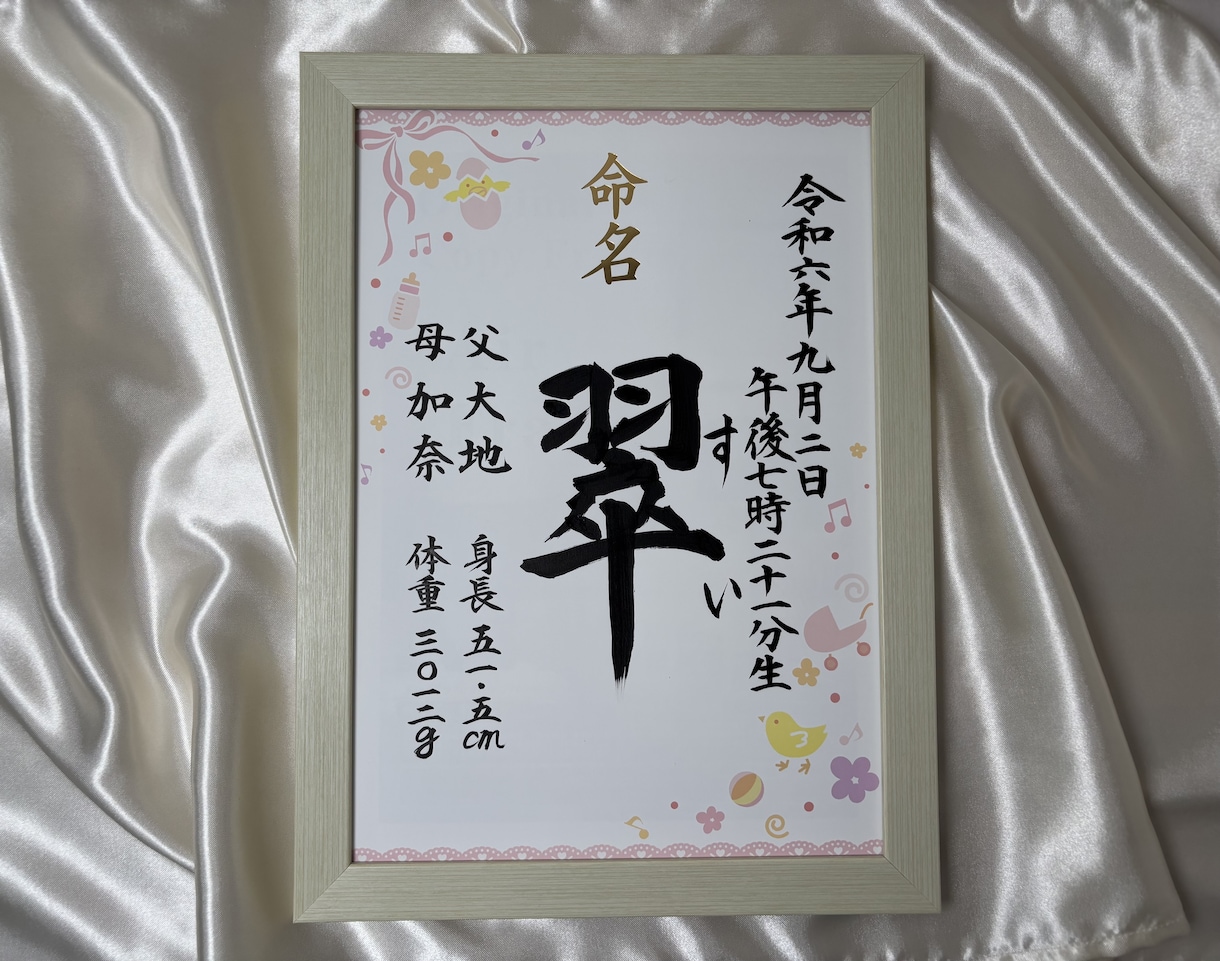 令和六年九月二日
午後七時二十一分生
命名
すい
翠
父 大地
母 加奈
身長 五一・五cm
体重 三〇一二g